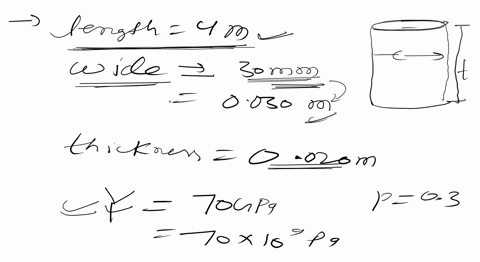 → length = 4 m ✓
wide → 30mm
= 0.030 m²
thickness = 0.020m
Y = 70GPa
= 70 × 10⁹ Pa
t
p = 0.3